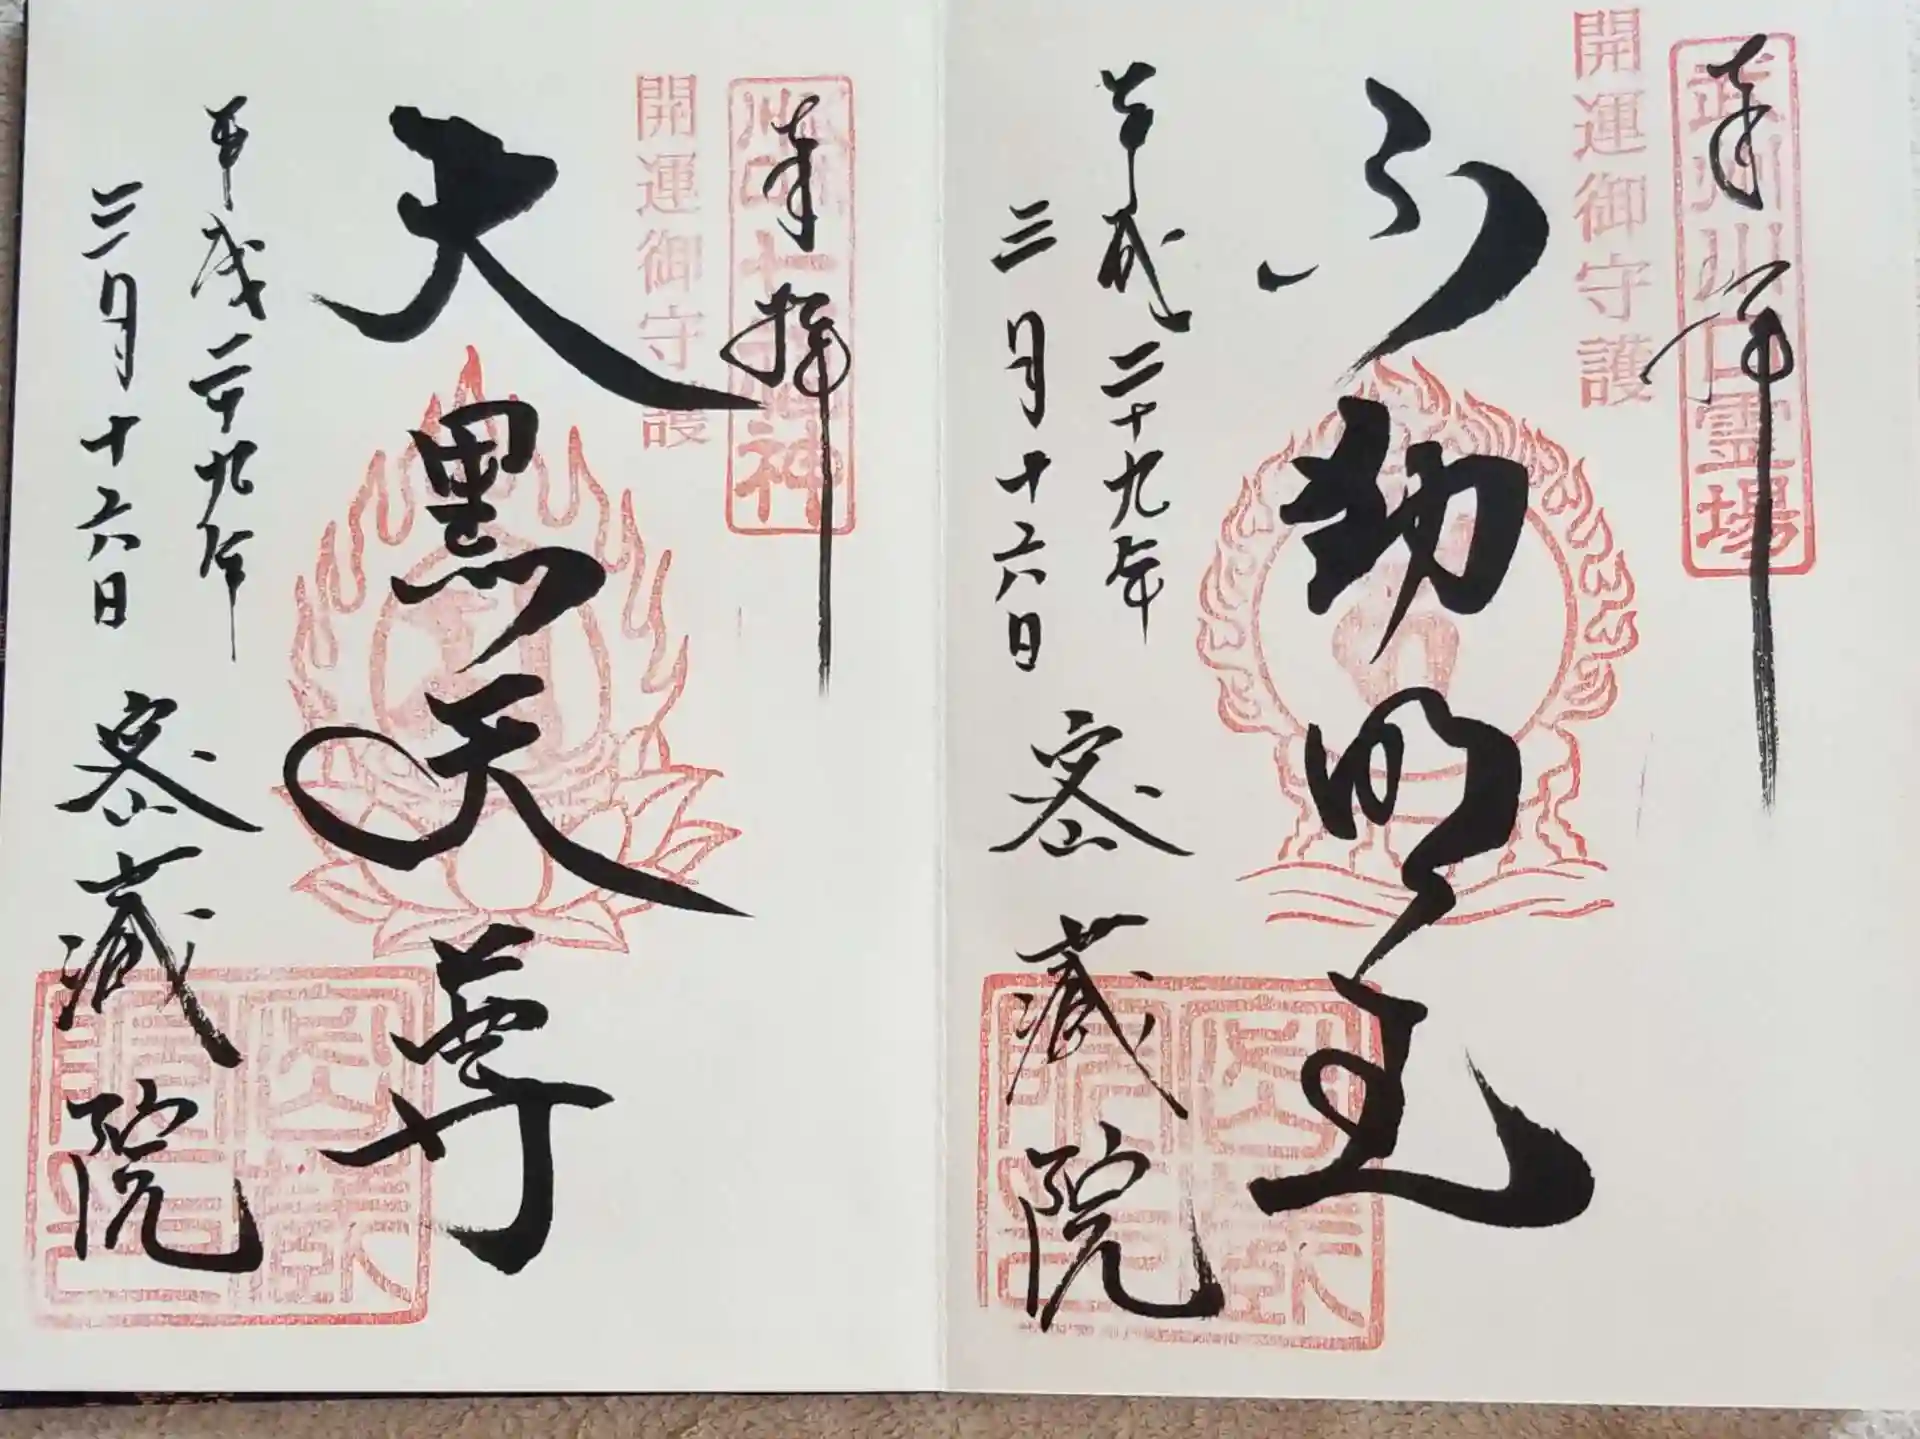 奉拝
武州川口霊場
開運御守護
不動明王
平成二十九年
三月十六日
密蔵院
奉拝
川口七福神
開運御守護
大黒天尊
平成二十九年
三月十六日
密蔵院